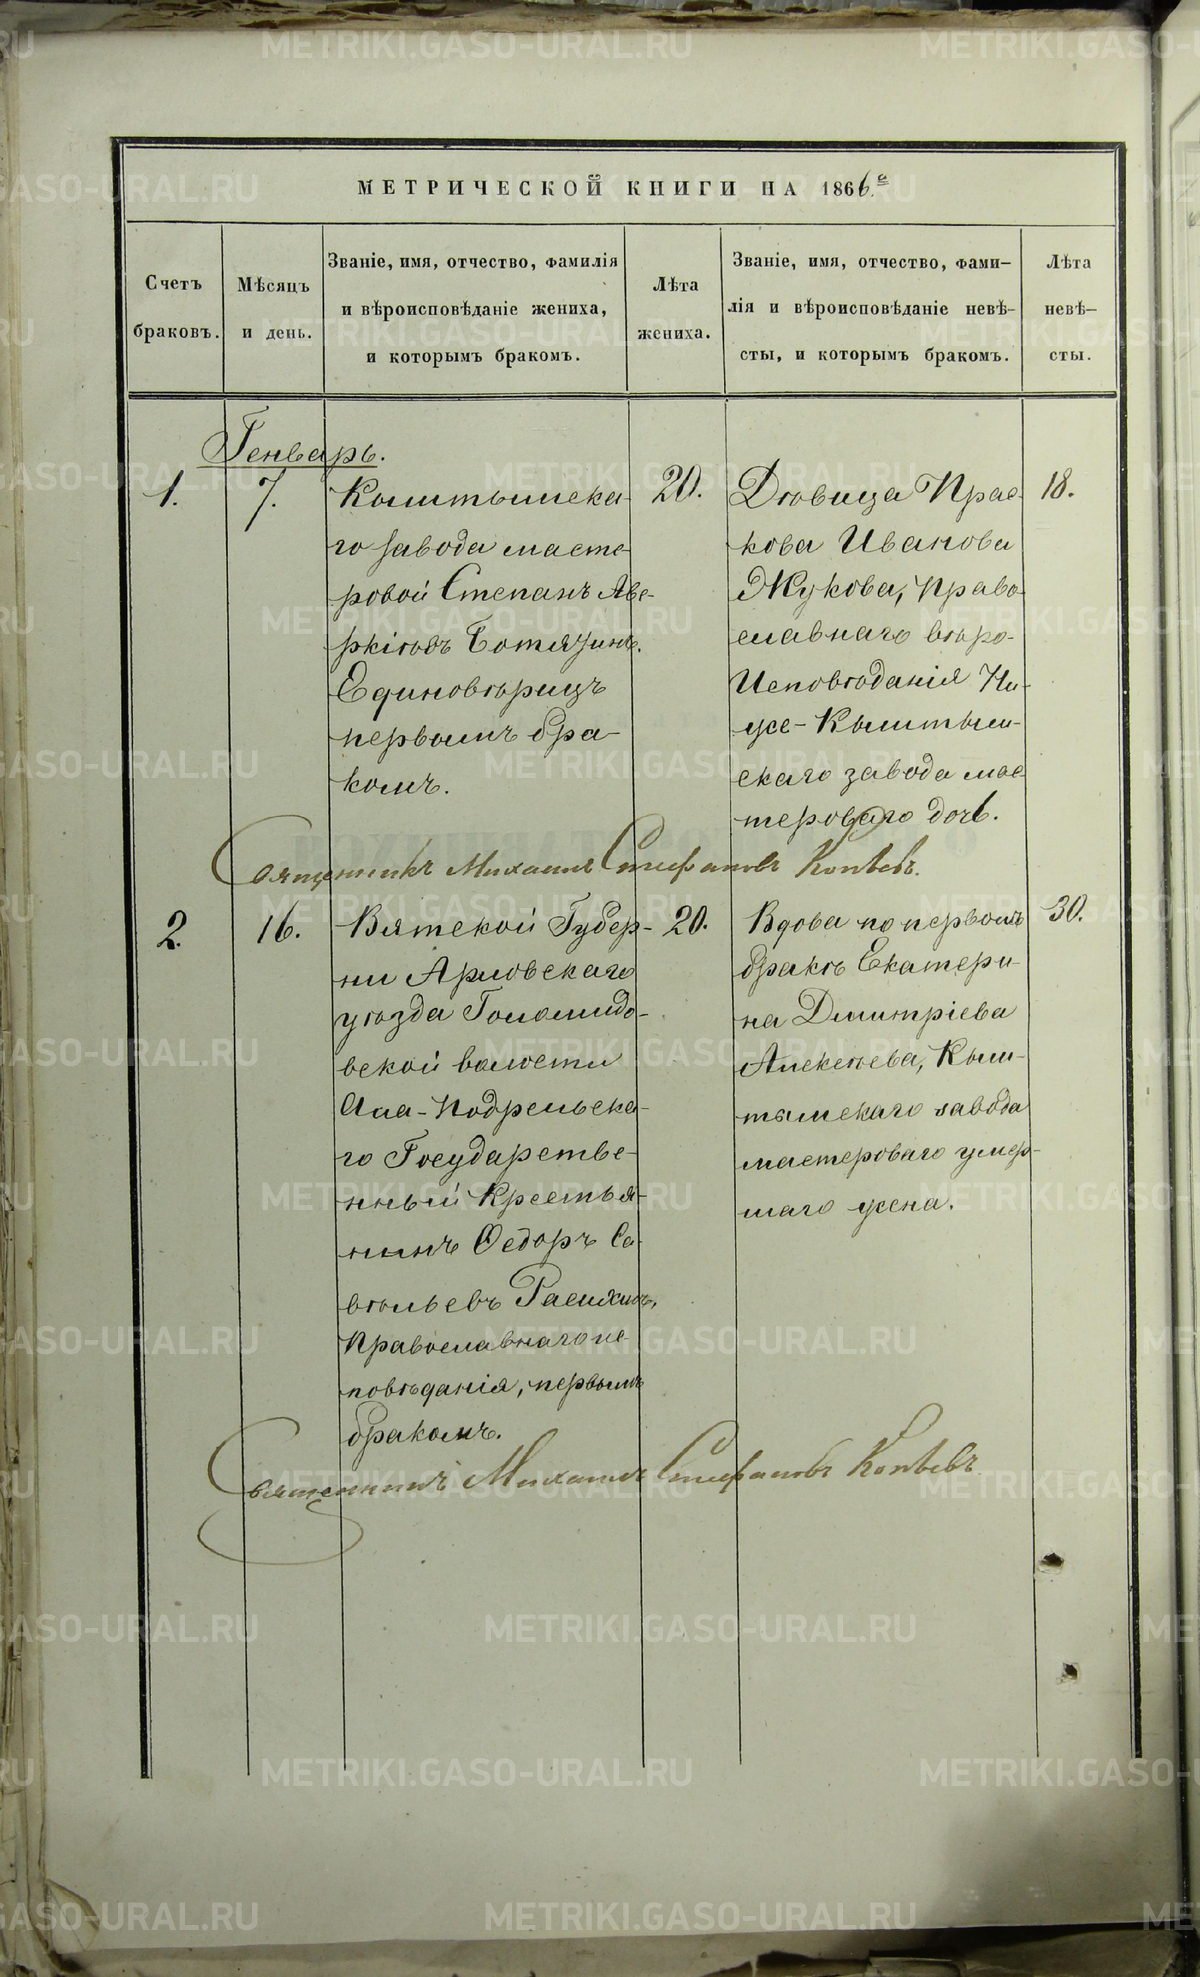 МЕТРИЧЕСКОЙ КНИГИ НА 1866.е
Счетъ
браковъ.
Мѣсяцъ
и день.
Званіе, имя, отчество, фамилія
и вѣроисповѣданіе жениха,
и которымъ бракомъ.
Лѣта
жениха.
Званіе, имя, отчество, фами–
лія и вѣроисповѣданіе невѣ–
сты, и которымъ бракомъ.
Лѣта
невѣ–
сты.
Генварь.
1.
7.
Кыштымска-
го завода масте-
ровой Степанъ Аве-
ркіевъ
Единовѣрицъ
первымъ бра-
комъ.
20.
Дѣвица Прас-
кова Иванова
Жукова, Право-
славнаго вѣро-
Исповѣданія Ни-
же-Кыштым-
скаго завода мас-
тероваго дочь.
18.
Священникъ Михаилъ Стефановъ Копѣевъ.
2.
16.
Вятской Губер-
ни Арловскаго
уѣзда
вской волости

го Государстве-
нный Крестья-
нинъ Ѳедоръ Са-
вѣльевъ
Православнаго ис-
повѣданія, первымъ
бракомъ.
20.
Вдова по первомъ
бракѣ Екатери-
на Дмитріева
Алексѣева, Кыш-
тымскаго завода
мастероваго умер-
шаго жена.
30.
Священникъ Михаилъ Стефановъ Копѣевъ
METRIKI.GASO-URAL.RU